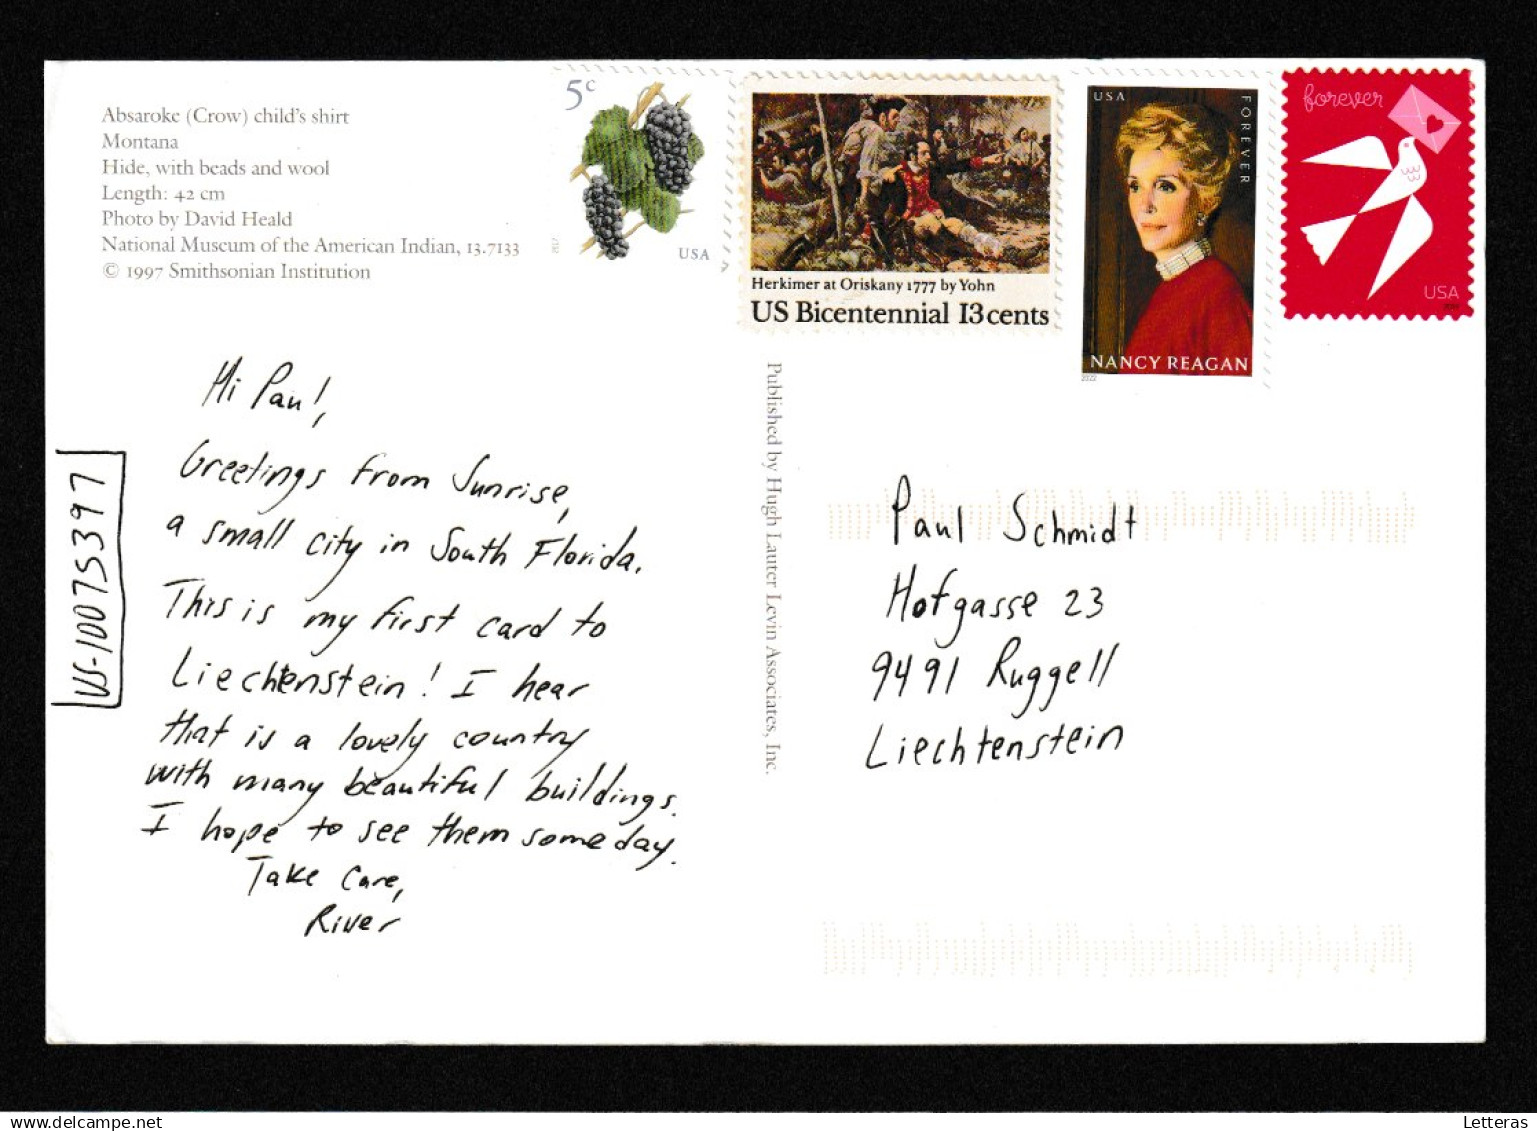 Absaroke (Crow) child's shirt
Montana
Hide, with beads and wool
Length: 42 cm
Photo by David Heald
National Museum of the American Indian, 13.7133
© 1997 Smithsonian Institution
5c
USA
2017
Herkimer at Oriskany 1777 by Yohn
US Bicentennial 13cents
USA
FOREVER
NANCY REAGAN
2022
forever
USA
Hi Paul,
Greetings from Sunrise,
a small city in South Florida.
This is my first card to
Liechtenstein! I hear
that is a lovely country
with many beautiful buildings.
I hope to see them someday.
Take Care,
River
US-10075397
Published by Hugh Lauter Levin Associates, Inc.
Paul Schmidt
Hofgasse 23
9491 Ruggell
Liechtenstein
Letteras